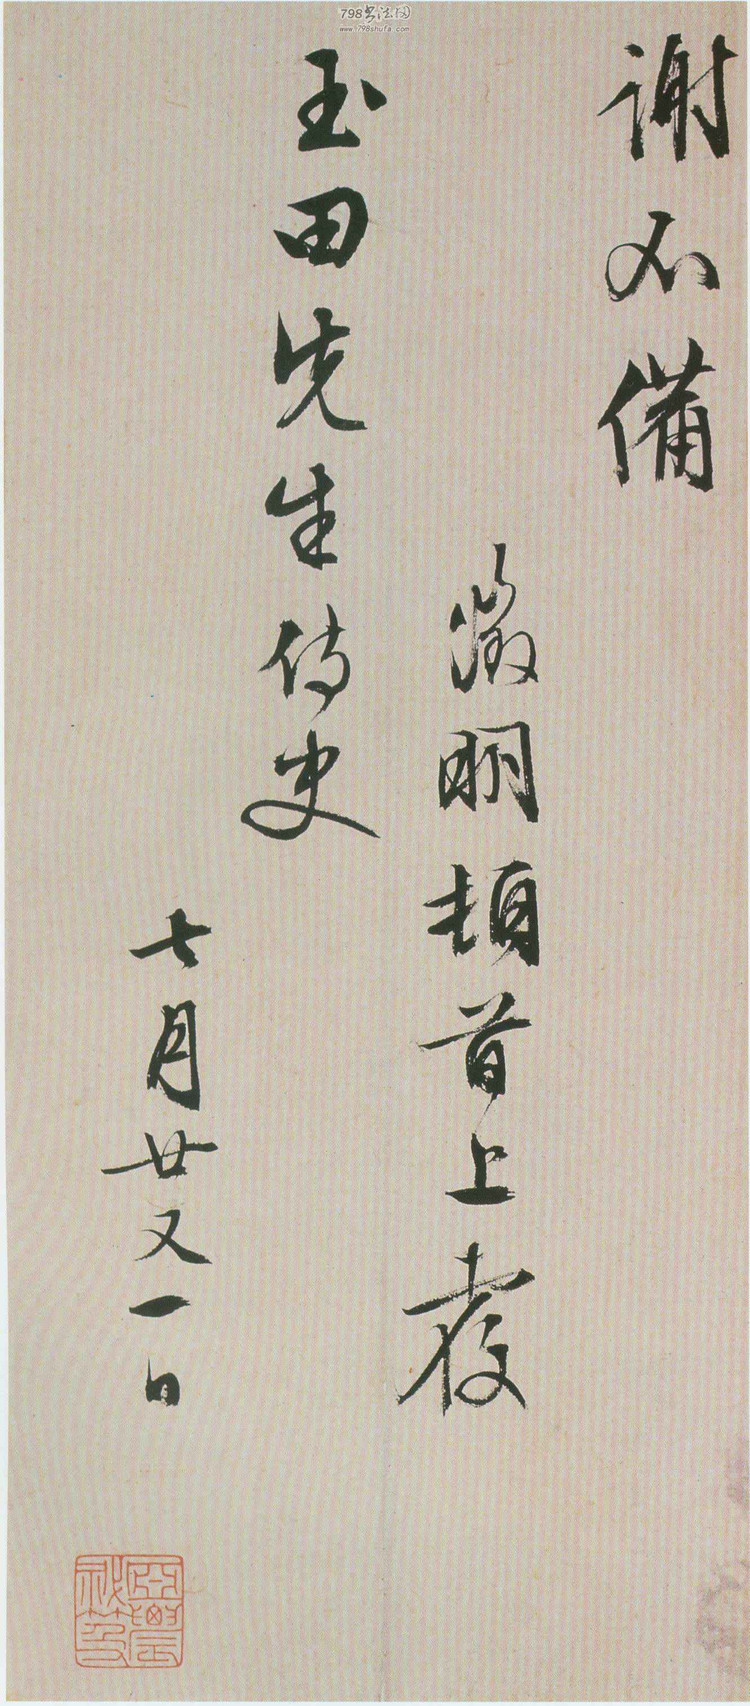 798书法网
www.798shufa.com
謝不備
徵明頓首上覆
玉田先生侍史
七月廿又一日